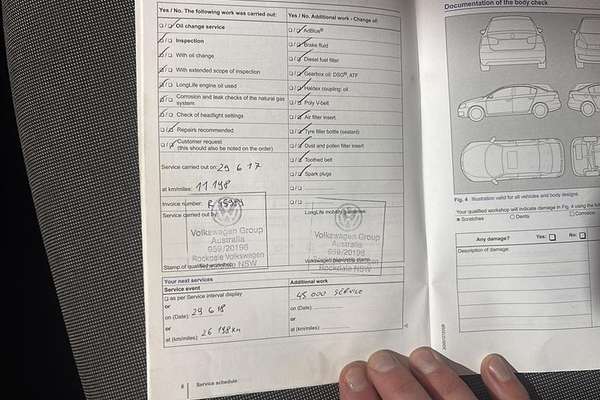 Yes / No. The following work was carried out:
Oil change service
Inspection
With oil change
With extended scope of inspection
LongLife engine oil used
Corrosion and leak checks of the natural gas
system
Check of headlight settings
Repairs recommended
Customer request
(this should also be noted on the order)
Service carried out on: 29 6 17
at km/miles: 11 198
Invoice number:
Service carried out by:
Volkswagen Group
Australia
959/20196
Rockdale Volkswagen
NSW
Stamp of qualified workshop
Yes / No. Additional work - Change of:
AdBlue®
Brake fluid
Diesel fuel filter
Gearbox oil: DSG®, ATF
Haldex coupling: oil
Poly V-belt
Air filter insert
Tyre filler bottle (sealant)
Dust and pollen filter insert
Toothed belt
Spark plugs
LongLife mobility guarantee:
Volkswagen Group
Australia
959/20196
Rockdale Volkswagen
NSW
Your next services
Service event
as per Service interval display
or
on (Date): 29 6 18
or
at (km/miles): 26 198 km
Additional work
45 000 SERVICE
on (Date):
or
at (km/miles):
8 Service schedule
Documentation of the body check
Fig. 4 Illustration valid for all vehicles and body designs.
Your qualified workshop will indicate damage in Fig. 4 using the
Scratches Dents Corrosion
Any damage? Yes: No:
Description of damage: